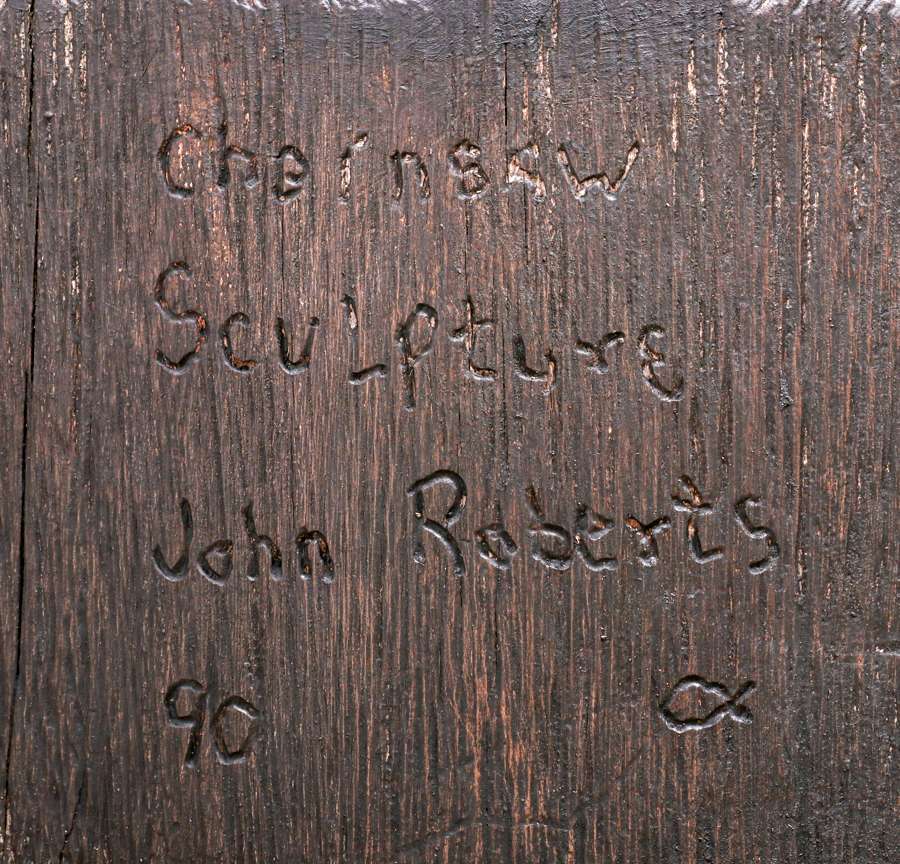 Chainsaw
Sculpture
John Roberts
90